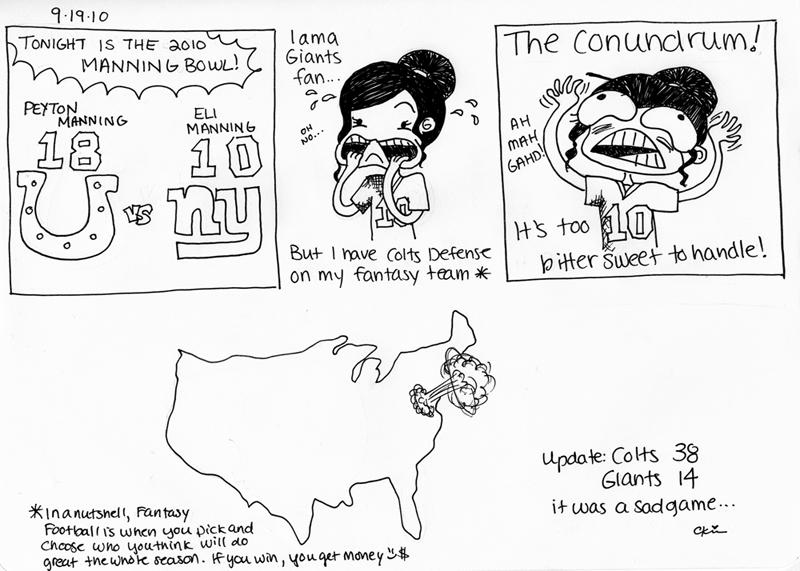 9.19.10
TONIGHT IS THE 2010
MANNING BOWL!
PEYTON
MANNING
18
VS
ELI
MANNING
10
ny
I am a
Giants
fan...
OH
NO...
10
But I have Colts Defense
on my fantasy team *
The Conundrum!
AH
MAH
GAHD!
10
It's too
bitter sweet to handle!
* In a nutshell, Fantasy
Football is when you pick and
choose who you think will do
great the whole season. If you win, you get money $
Update: Colts 38
Giants 14
it was a sad game...